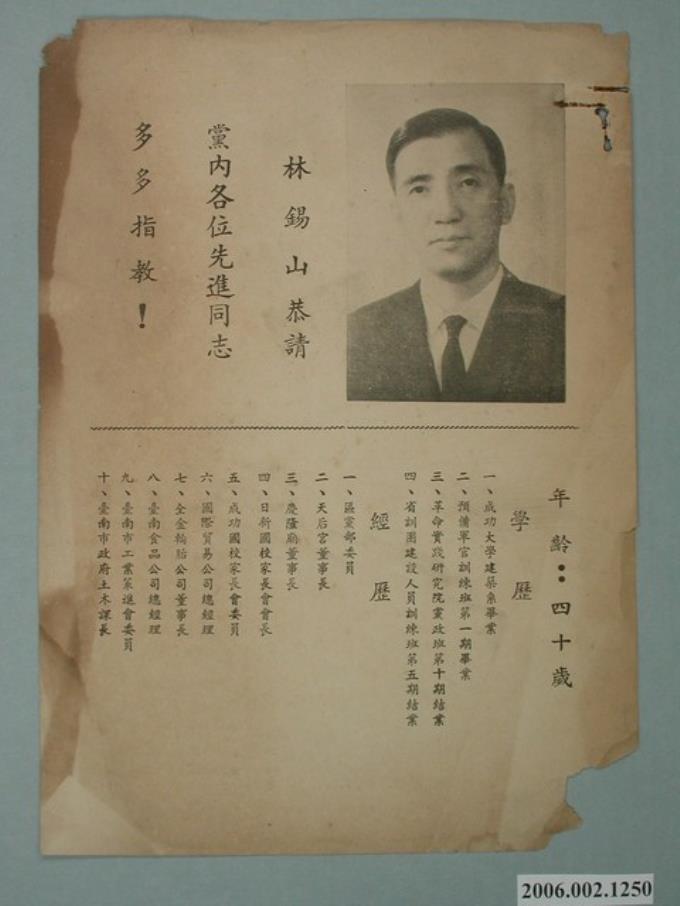 林錫山恭請
黨內各位先進同志
多多指教！
年齡：四十歲
學歷
一、成功大學建築系畢業
二、預備軍官訓練班第一期畢業
三、革命實踐研究院黨政班第十期結業
四、省訓團建設人員訓練班第五期結業
經歷
一、區黨部委員
二、天后宮董事長
三、慶隆廟董事長
四、日新國校家長會會長
五、成功國校家長會委員
六、國際貿易公司總經理
七、全金輪胎公司董事長
八、臺南食品公司總經理
九、臺南市工業策進會委員
十、臺南市政府土木課長
2006.002.1250